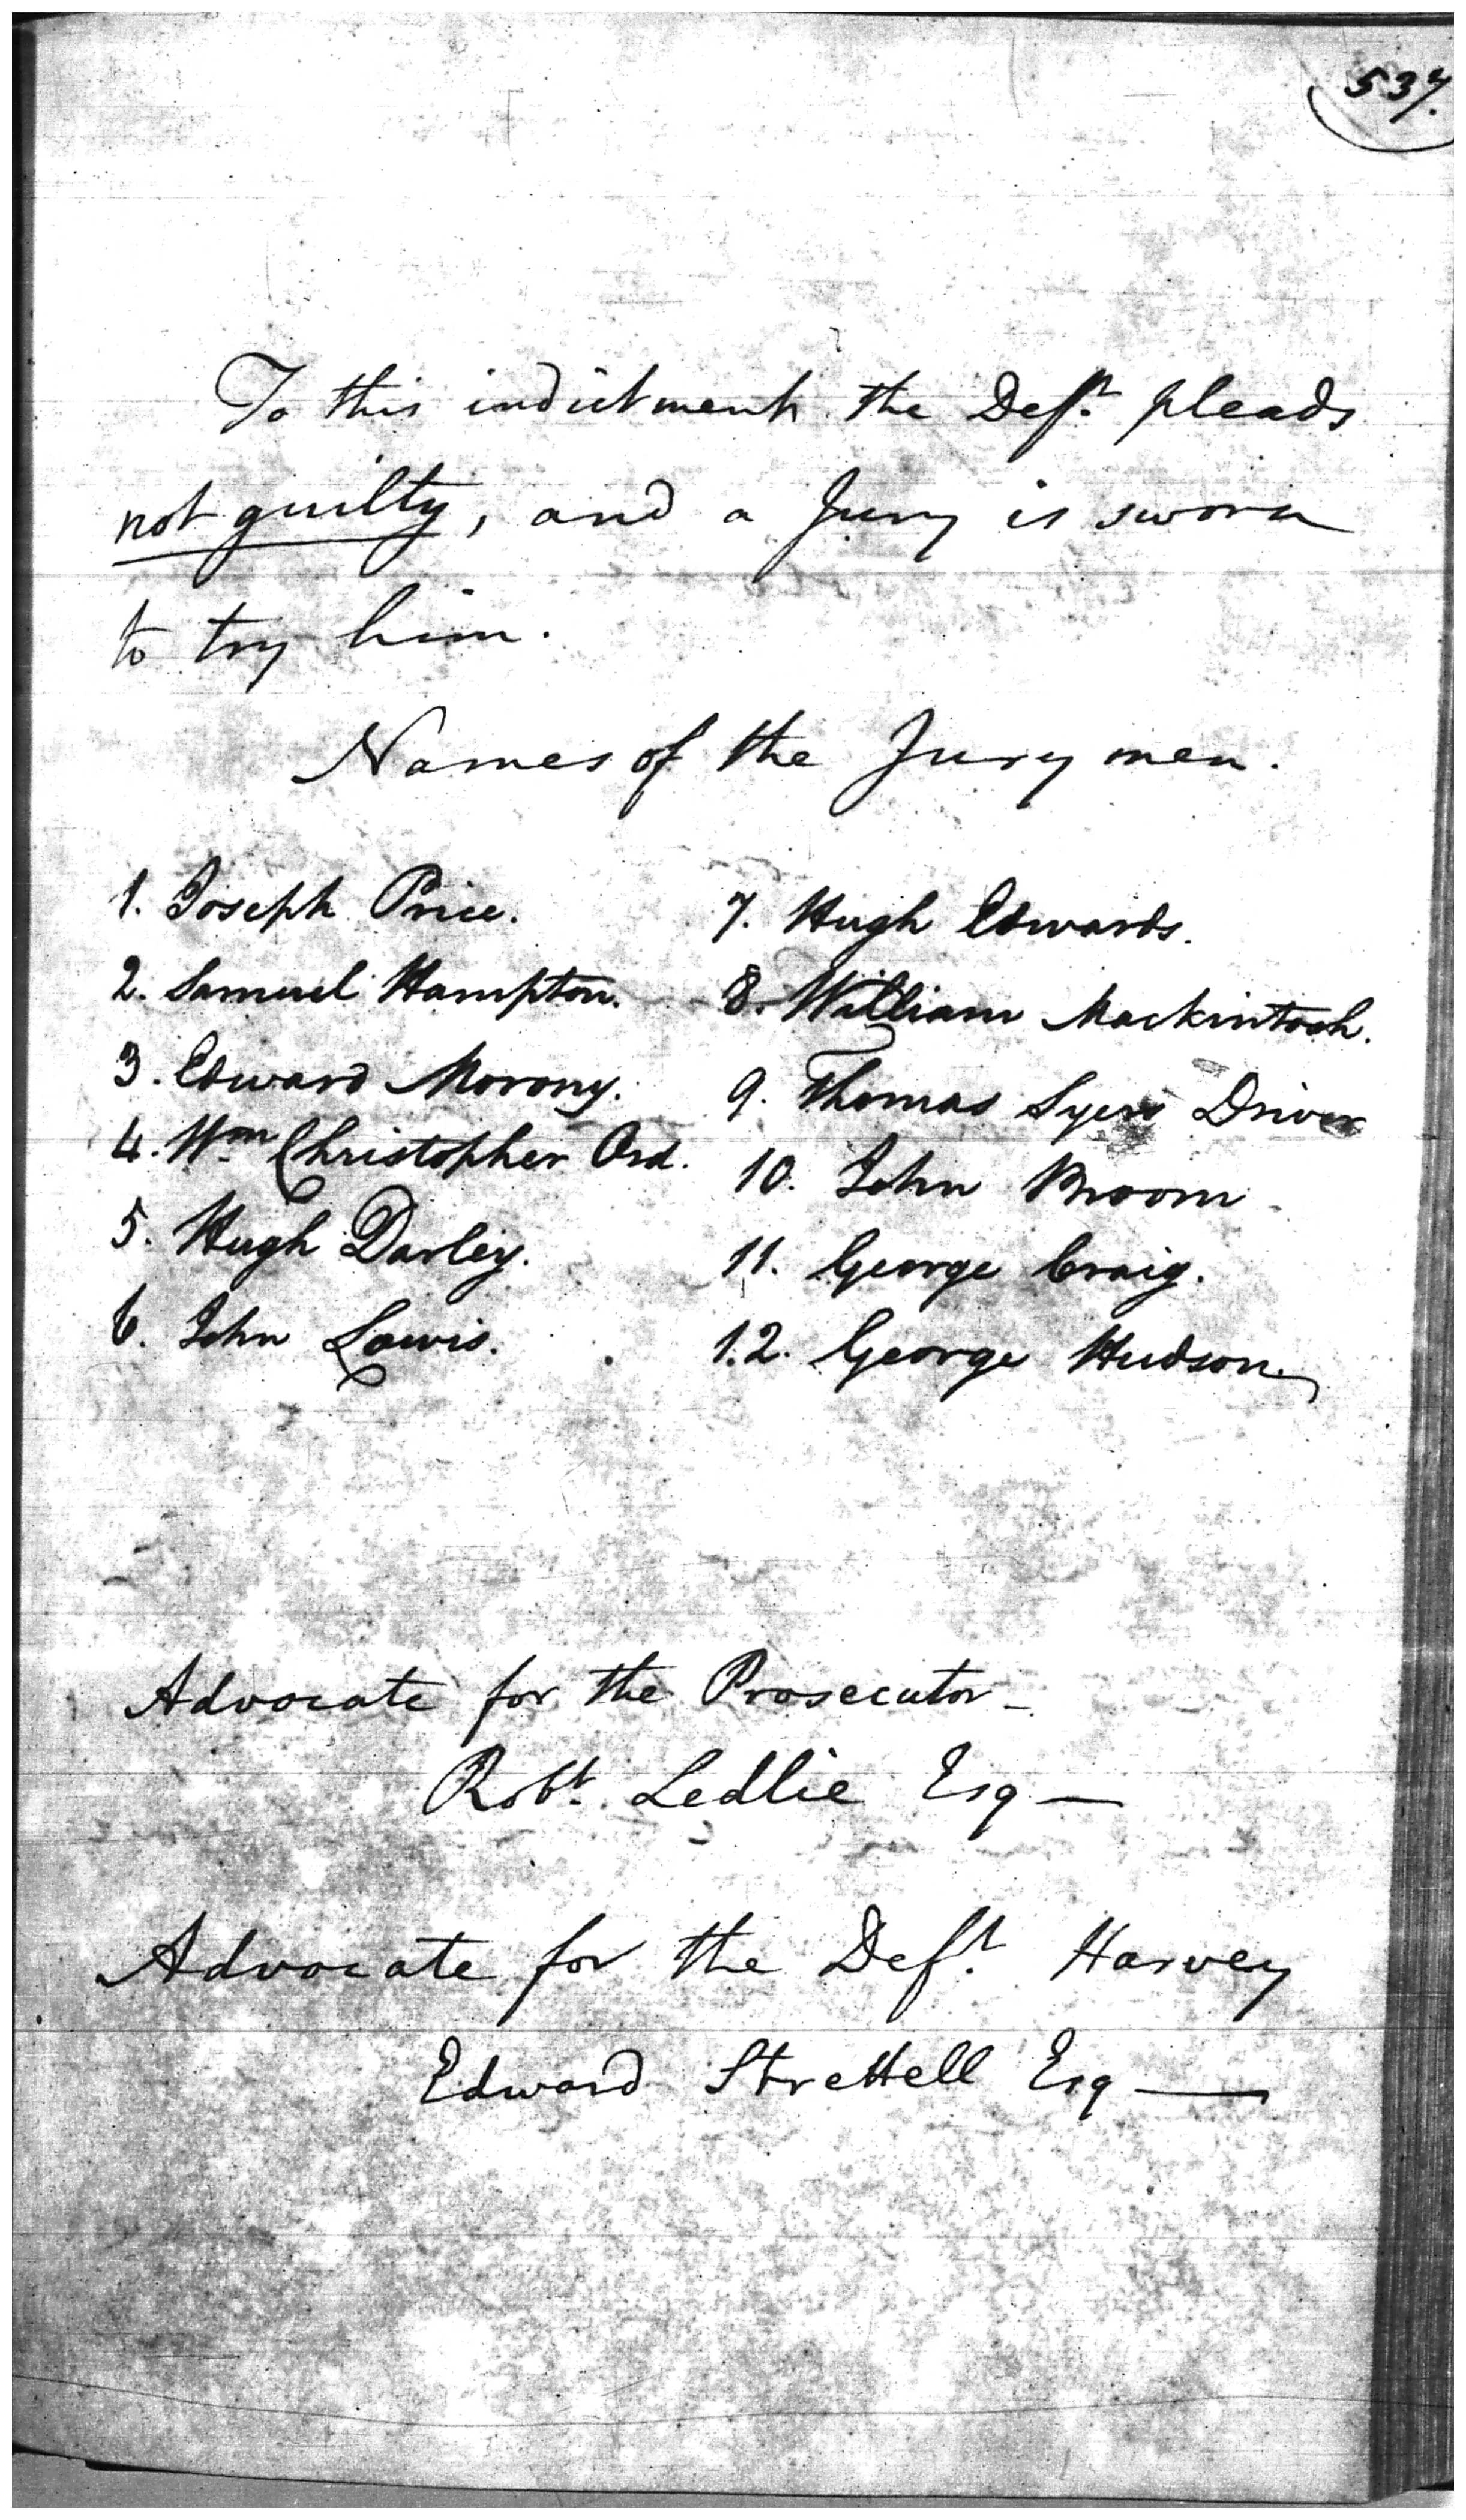 537.
To this indictment the Deft. pleads
not guilty, and a Jury is sworn
to try him.
Names of the Jury men.
1. Joseph Price.
2. Samuel Hampton.
3. Edward Morony.
4. Wm Christopher Ord.
5. Hugh Darley.
6. John Lewis.
7. Hugh Edwards.
8. William Mackintosh.
9. Thomas Syers Driver
10. John Broom
11. George Craig.
12. George Hudson.
Advocate for the Prosecutor -
Robt. Ledlie Esq —
Advocate for the Deft. Harvey
Edward Strettell Esq —